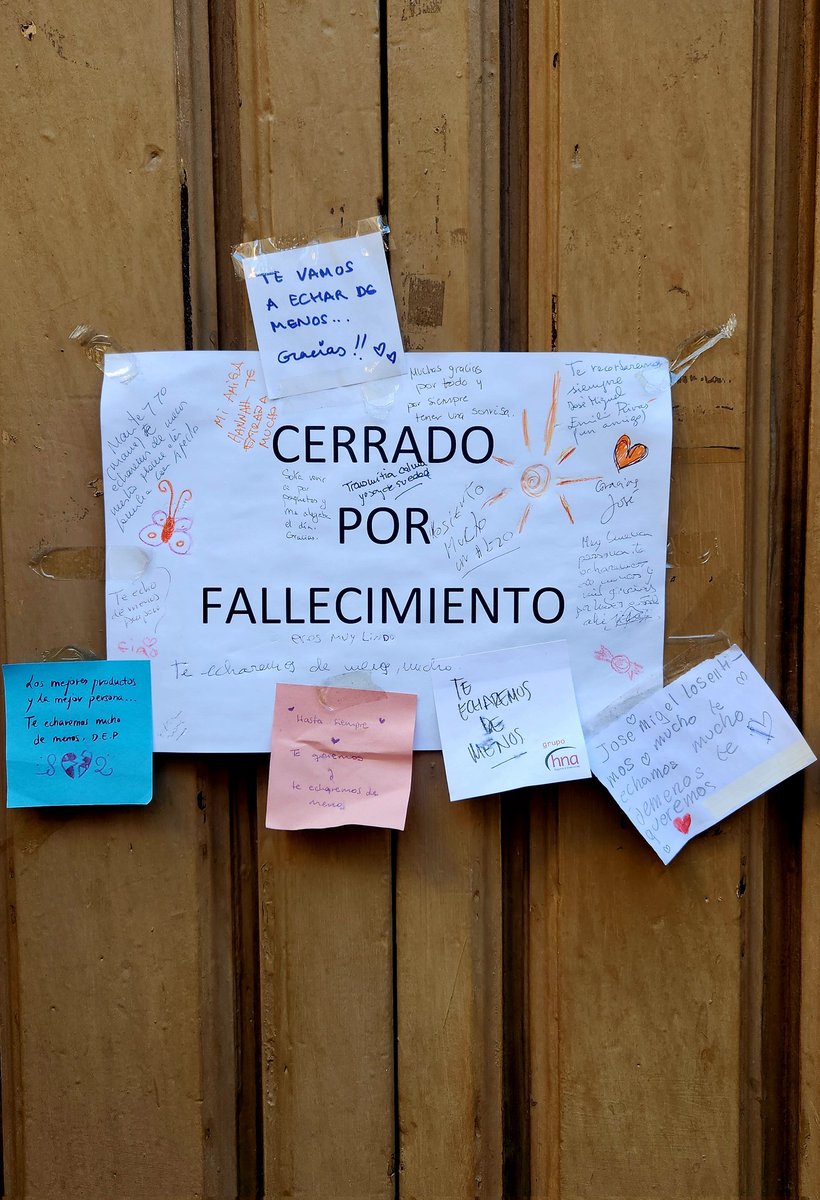 TE VAMOS
A ECHAR DE
MENOS...
Gracias!!
MI AMIGA
HANNAH TE
MUCHO
Muchas gracias
por todo y
por siempre
tener una sonrisa.
Te recordaremos
siempre
José Miguel
Emili Rivas
(un amigo)
CERRADO
POR
FALLECIMIENTO
echaremos de menos
Solía venir
a por
paquetes y
me alegraba
el día.
Gracias.
Transmitía calma
LO SIENTO
MUCHO
UN ABRAZO
Gracias
José
Muy buena
persona, te
echaremos
de menos y
Te echo
de menos
eres MUY LINDO
Te echaremos de menos, mucho.
Los mejores productos
y la mejor persona...
Te echaremos mucho
de menos. D.E.P
Hasta siempre
Te queremos
y
te echaremos de
menos
TE
ECHAREMOS
DE
MENOS
grupo
hna
Jose Migel lo senti-
mos mucho te
echamos mucho
demenos te
queremos